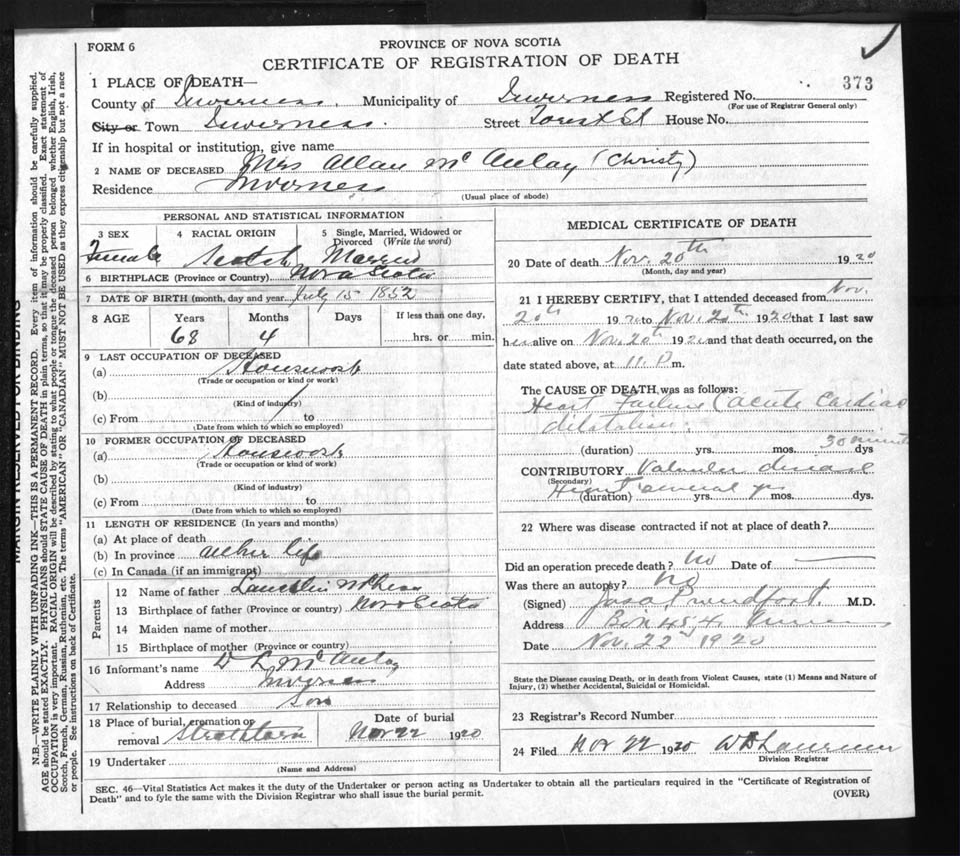 FORM 6
PROVINCE OF NOVA SCOTIA
CERTIFICATE OF REGISTRATION OF DEATH
373
1 PLACE OF DEATH—
County of Inverness. Municipality of Inverness Registered No.
(For use of Registrar General only)
City or Town Inverness. Street Forest St House No.
If in hospital or institution, give name
2 NAME OF DECEASED Mrs Allan McAulay (Christy)
Residence Inverness
(Usual place of abode)
PERSONAL AND STATISTICAL INFORMATION
3 SEX 4 RACIAL ORIGIN 5 Single, Married, Widowed or Divorced (Write the word)
Female Scotch Married
6 BIRTHPLACE (Province or Country) Nova Scotia
7 DATE OF BIRTH (month, day and year) July 15 1852
8 AGE Years Months Days If less than one day,
68 4 hrs. or min.
9 LAST OCCUPATION OF DECEASED
(a) Housework
(Trade or occupation or kind or work)
(b)
(Kind of industry)
(c) From to
(Date from which to which so employed)
10 FORMER OCCUPATION OF DECEASED
(a) Housework
(Trade or occupation or kind of work)
(b)
(Kind of industry)
(c) From to
(Date from which to which so employed)
11 LENGTH OF RESIDENCE (In years and months)
(a) At place of death
(b) In province all her life
(c) In Canada (if an immigrant)
Parents
12 Name of father Lauchlin
13 Birthplace of father (Province or country) Nova Scotia
14 Maiden name of mother
15 Birthplace of mother (Province or country)
16 Informant's name D L McAulay
Address Inverness
17 Relationship to deceased Son
18 Place of burial, cremation or removal Strathlorn Date of burial Nov 22 1920
19 Undertaker
(Name and Address)
MEDICAL CERTIFICATE OF DEATH
20 Date of death Nov. 20th 1920
(Month, day and year)
21 I HEREBY CERTIFY, that I attended deceased from Nov.
20th 1920 to Nov. 20th 1920 that I last saw
her alive on Nov. 20th 1920 and that death occurred, on the
date stated above, at 11. P m.
The CAUSE OF DEATH was as follows:
Heart Failure (acute Cardiac
dilatation.
(duration) yrs. mos. 30 minutes dys
CONTRIBUTORY Valvular disease
(Secondary) Heart
(duration) several yrs yrs. mos. dys.
22 Where was disease contracted if not at place of death?
Did an operation precede death? No Date of —
Was there an autopsy? No
(Signed) M.D.
Address Box 454
Date Nov. 22nd 1920
State the Disease causing Death, or in death from Violent Causes, state (1) Means and Nature of
Injury, (2) whether Accidental, Suicidal or Homicidal.
23 Registrar's Record Number
24 Filed Nov 22 1920
Division Registrar
SEC. 46—Vital Statistics Act makes it the duty of the Undertaker or person acting as Undertaker to obtain all the particulars required in the "Certificate of Registration of
Death" and to fyle the same with the Division Registrar who shall issue the burial permit.
(OVER)
MARGIN RESERVED FOR BINDING
N.B.—WRITE PLAINLY WITH UNFADING INK—THIS IS A PERMANENT RECORD. Every item of information should be carefully supplied.
AGE should be stated EXACTLY. PHYSICIANS should STATE CAUSE OF DEATH in plain terms, so that it may be properly classified. Exact statement of
OCCUPATION is very important. RACIAL ORIGIN will be described by stating to what people or tongue the deceased person belonged whether English, Irish,
Scotch, French, German, Russian, Ruthenian, etc. The terms "AMERICAN" OR "CANADIAN" MUST NOT BE USED as they express citizenship but not a race
or people. See instructions on back of Certificate.